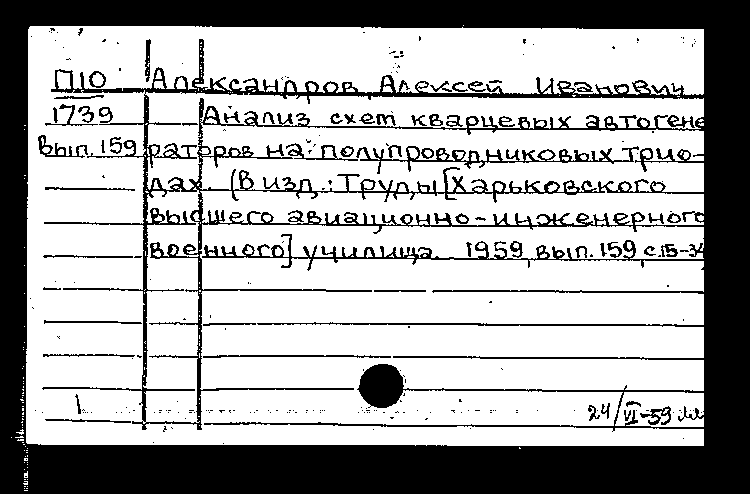 П10 Александров, Алексей Иванович
1739 Анализ схем кварцевых автогене
Вып. 159 раторов на полупроводниковых трио-
дах. (В изд.: Труды [Харьковского
высшего авиационно-инженерного
военного] училища. 1959, вып. 159, с. 15-34
24/VI-59